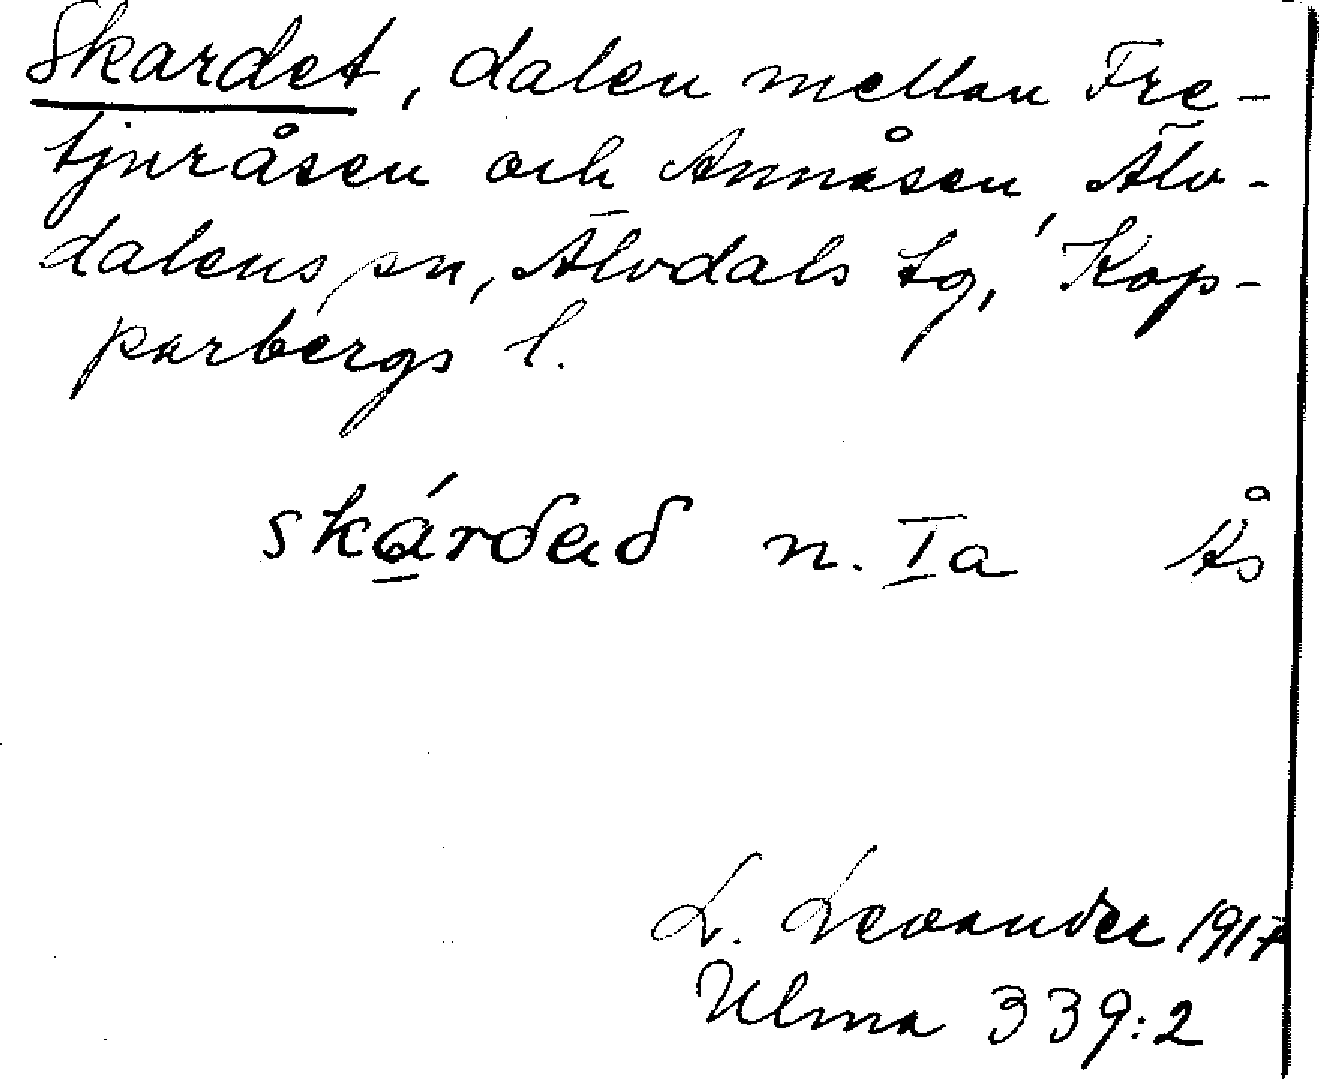 Skardet, dalen mellan Fre-
tjnråsen och Annåsen, Älv-
dalens sn, Älvdals tg, Kop-
parbergs l.
skárdad n. Ia Ås
L. Levander 1917
Ulma 339:2